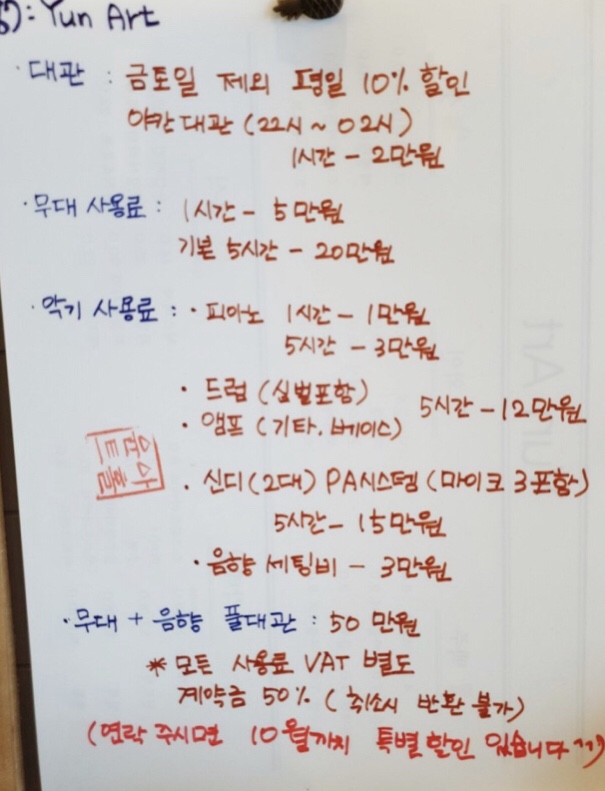 : Yun Art
· 대관 : 금토일 제외 평일 10% 할인
야간대관 (22시 ~ 02시)
1시간 - 2만원
· 무대 사용료 : 1시간 - 5만원
기본 5시간 - 20만원
· 악기 사용료 : · 피아노 1시간 - 1만원
5시간 - 3만원
· 드럼 (심벌포함)
· 앰프 (기타. 베이스) 5시간 - 12만원
· 신디(2대) PA시스템 (마이크 3포함)
5시간 - 15만원
· 음향 세팅비 - 3만원
· 무대 + 음향 풀대관 : 50만원
* 모든 사용료 VAT 별도
계약금 50% (취소시 반환 불가)
(연락 주시면 10월까지 특별할인 있습니다 ^^)